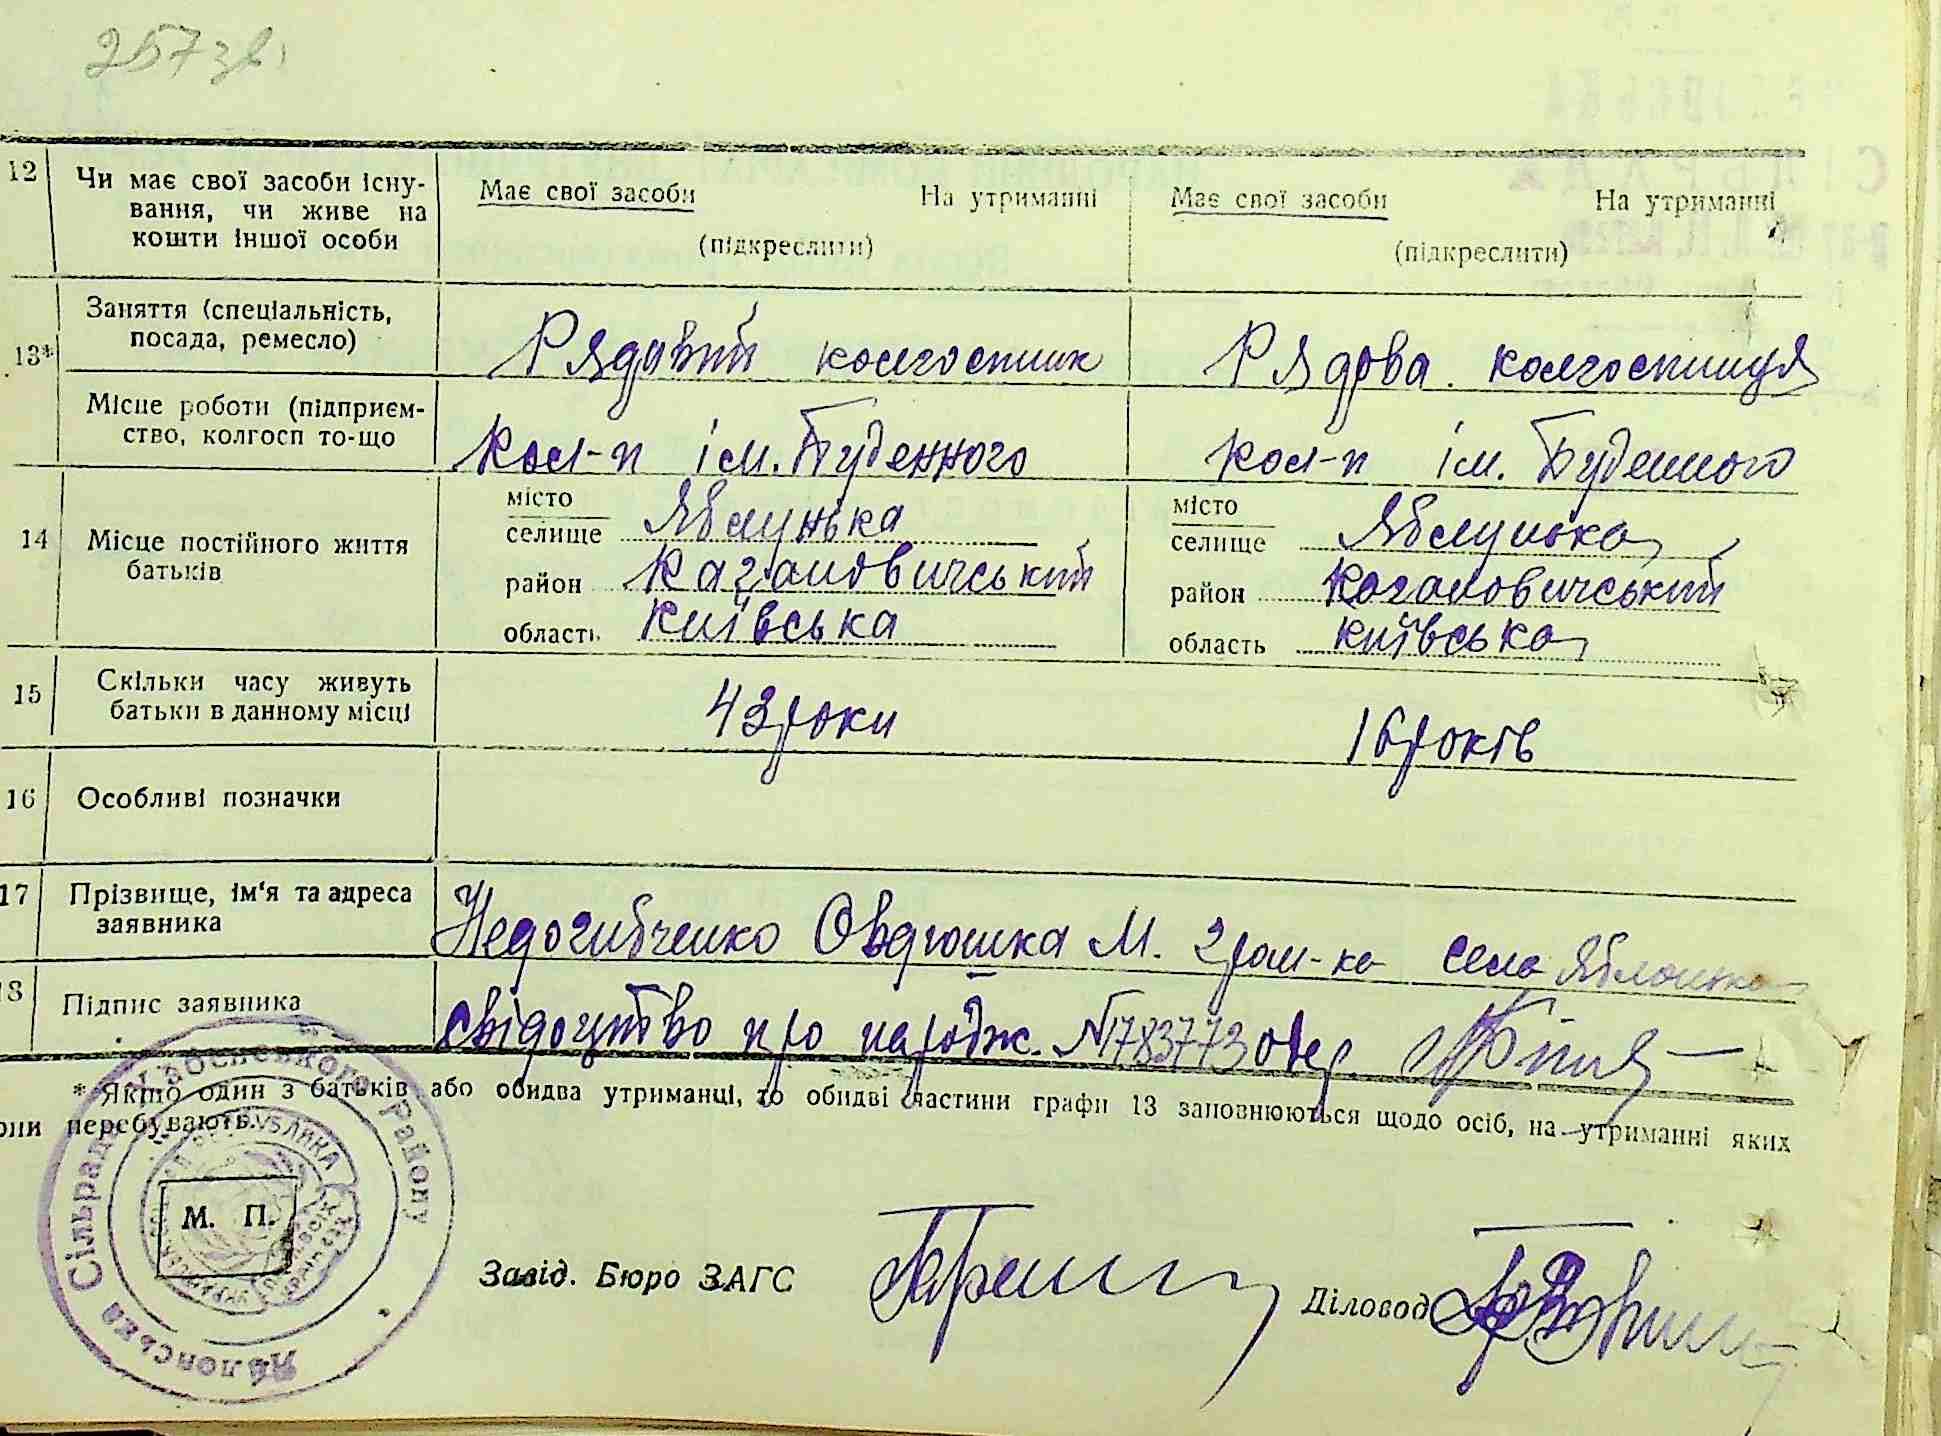 257 зв.
12 Чи має свої засоби існу-
вання, чи живе на
кошти іншої особи
Має свої засоби На утриманні
(підкреслити)
Має свої засоби На утриманні
(підкреслити)
13* Заняття (спеціальність,
посада, ремесло)
Рядовий колгоспник
Рядова колгоспниця
Місце роботи (підприєм-
ство, колгосп то-що
Кол-п ім. Буденного
Кол-п ім. Буденного
14 Місце постійного життя
батьків
місто
селище Яблунька
район Кагановичський
область Київська
місто
селище Яблунька
район Кагановичський
область Київська
15 Скільки часу живуть
батьки в данному місці
43 роки
16 років
16 Особливі позначки
17 Прізвище, ім'я та адреса
заявника
Недогибченко Овдюшка М. гром-ка села Яблонька
18 Підпис заявника
Свідоцтво про народж. №783773 одер.
* Якщо один з батьків або обидва утриманці, то обидві частини графи 13 заповнюються щодо осіб, на утриманні яких
они перебувають.
Яблонська Сільрада Району
РЕСПУБЛИКА
М. П.
Завід. Бюро ЗАГС
Діловод